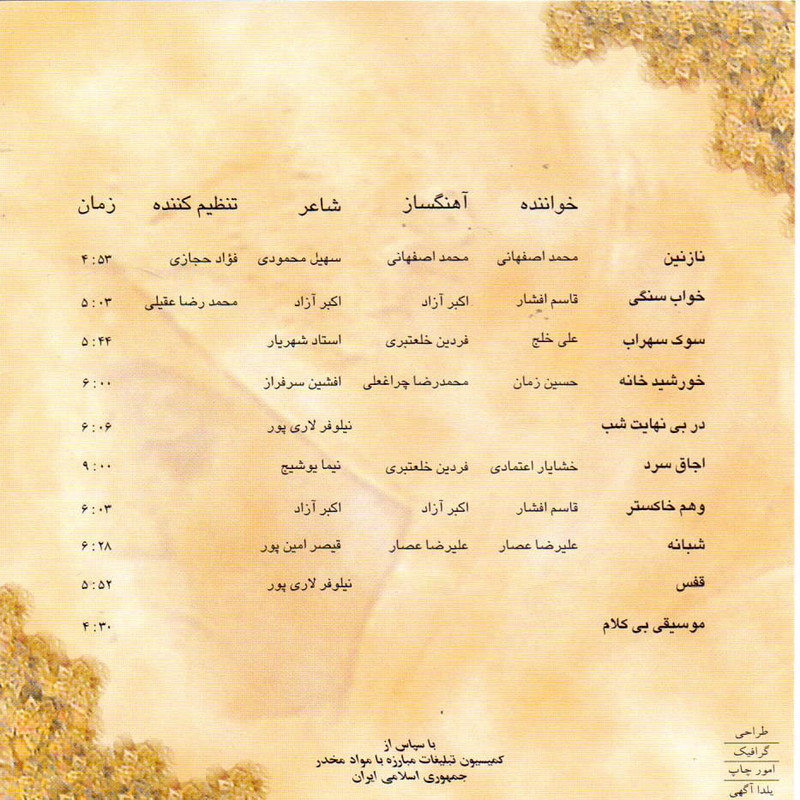 خواننده آهنگساز شاعر تنظیم کننده زمان
نازنین محمد اصفهانی محمد اصفهانی سهیل محمودی فؤاد حجازی ۴:۵۳
خواب سنگی قاسم افشار اکبر آزاد اکبر آزاد محمد رضا عقیلی ۵:۰۳
سوک سهراب علی خلج فردین خلعتبری استاد شهریار ۵:۴۴
خورشید خانه حسین زمان محمدرضا چراغعلی افشین سرفراز ۶:۰۰
در بی نهایت شب نیلوفر لاری پور ۶:۰۶
اجاق سرد خشایار اعتمادی فردین خلعتبری نیما یوشیج ۹:۰۰
وهم خاکستر قاسم افشار اکبر آزاد اکبر آزاد ۶:۰۳
شبانه علیرضا عصار علیرضا عصار قیصر امین پور ۶:۲۸
قفس نیلوفر لاری پور ۵:۵۲
موسیقی بی کلام ۴:۳۰
با سپاس از
کمیسیون تبلیغات مبارزه با مواد مخدر
جمهوری اسلامی ایران
طراحی
گرافیک
امور چاپ
یلدا آگهی